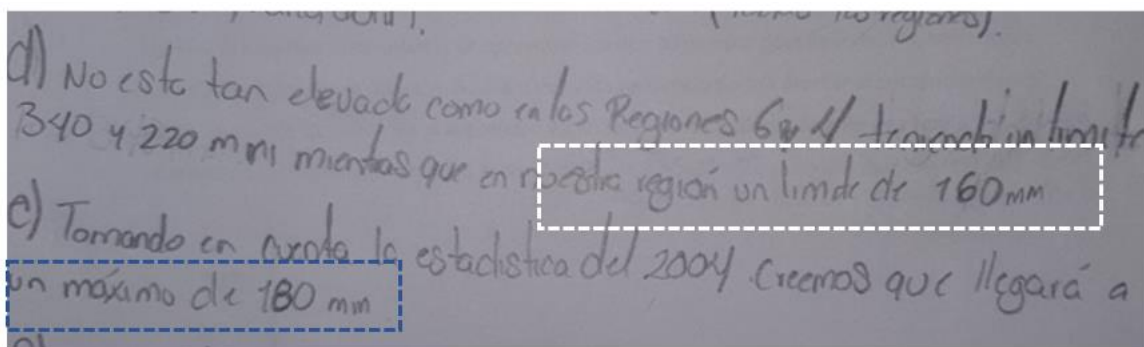 (          las regiones).
d) No esta tan elevado como en las Regiones 6 y 4 teniendo un limite
340 y 220 mm mientras que en nuestra región un limite de 160mm
e) Tomando en cuenta la estadistica del 2004 Creemos que llegará a
un máximo de 180 mm